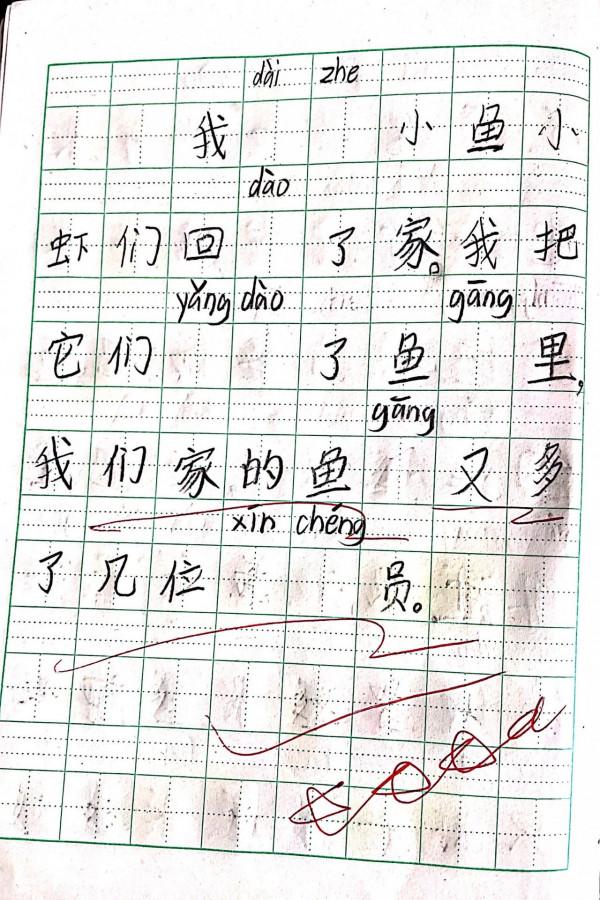 dài zhe
我 小鱼小
dào
虾们回 了家。我把
yǎng dào gāng
它们 了鱼 里,
gāng
我们家的鱼 又多
xīn chéng
了几位 员。
good